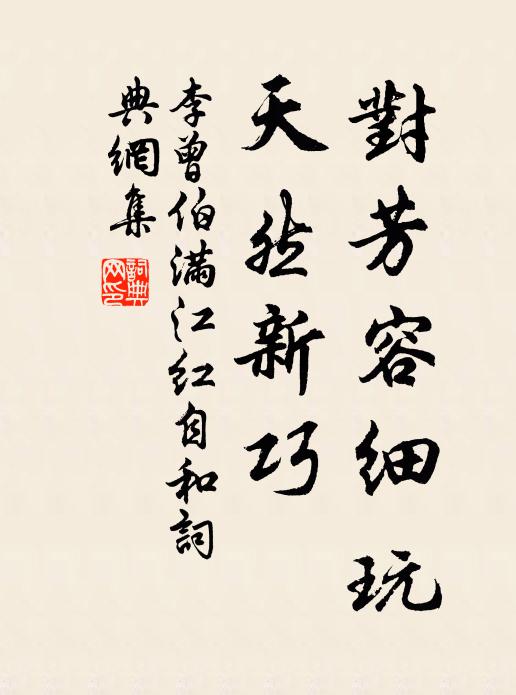 對芳容細玩
天然新巧
李曾伯满江红自和詞
典網集
詞典
网印